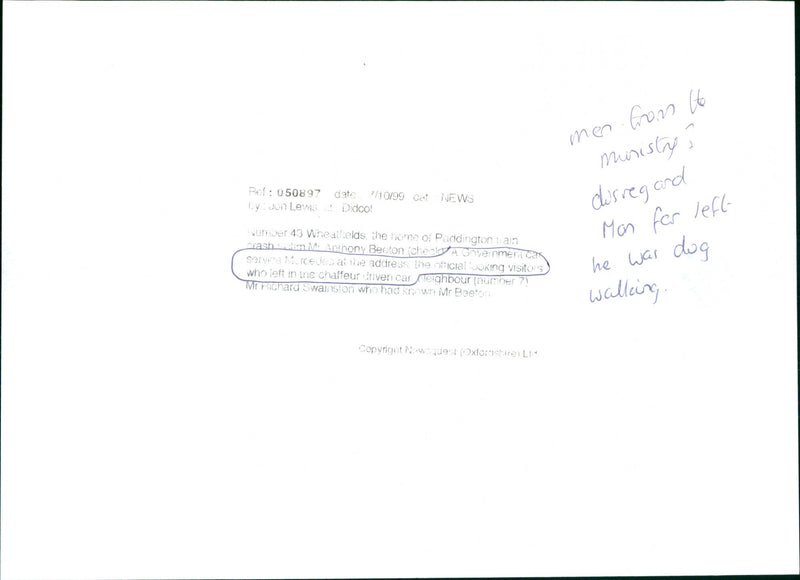 Ref: 050897 date: 7/10/99 cat: NEWS
by: Jon Lewis at: Didcot
Number 43 Wheatfields, the home of Paddington train
crash victim Mr Anthony Beeton (check). A Government car
service Mercedes at the address, the official looking visitors
who left in the chauffeur driven car. Neighbour (number 7)
Mr Richard Swainston who had known Mr Beeton.
Copyright Newsquest (Oxfordshire) Ltd
men from the
ministry?
disregard
Man far left
he was dog
walking.